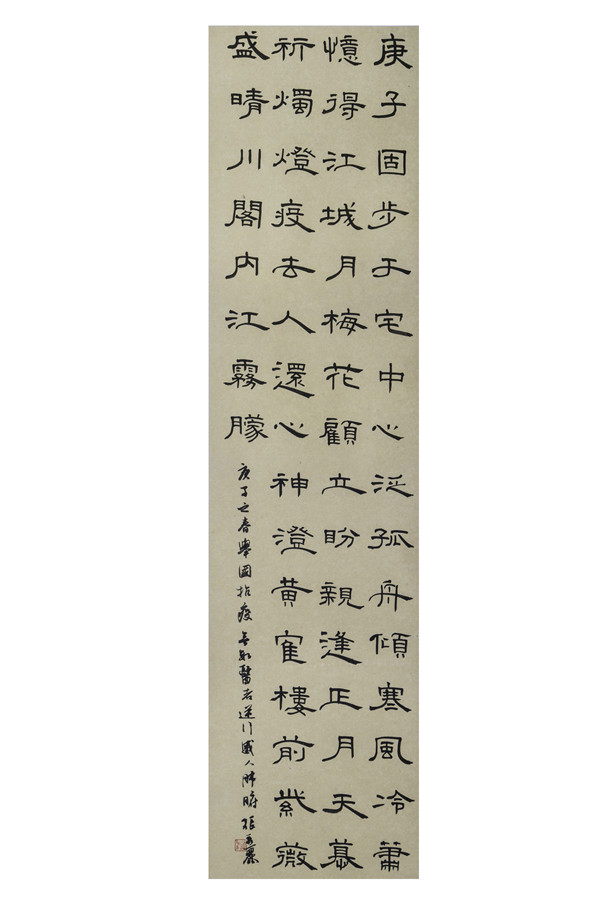 庚子固步于宅中心泛孤舟傾寒風冷蕭
憶得江城月梅花顧立盼親逢正月天暮
祈燭燈疫去人還心神澄黄寉樓前紫薇
盛晴川閣内江霧朦
庚子之春舉國抗疫無數醫者逆行感人肺腑張麗